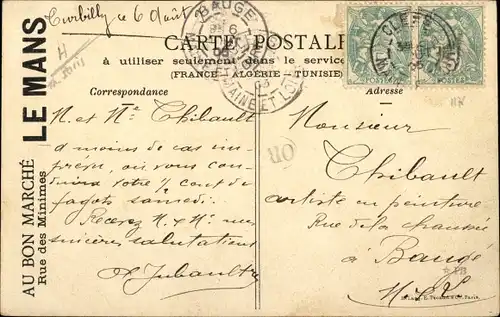 Turbilly ce 6 Août
BAUGÉ
MAINE ET LOIRE
CLEFS
CARTE POSTALE
à utiliser seulement dans le service
(FRANCE - ALGÉRIE - TUNISIE)
Correspondance
Adresse
AU BON MARCHÉ
Rue des Minimes
LE MANS
M. et Me Thibault
à moins de cas im-
prévu, on vous
votre ½ cent de
fagots samedi.
Recevez M. & Me mes
sincères salutations
Jubault
OR
Monsieur
Thibault
artiste en peinture
Rue de la chaussée
à Baugé
M. & L.